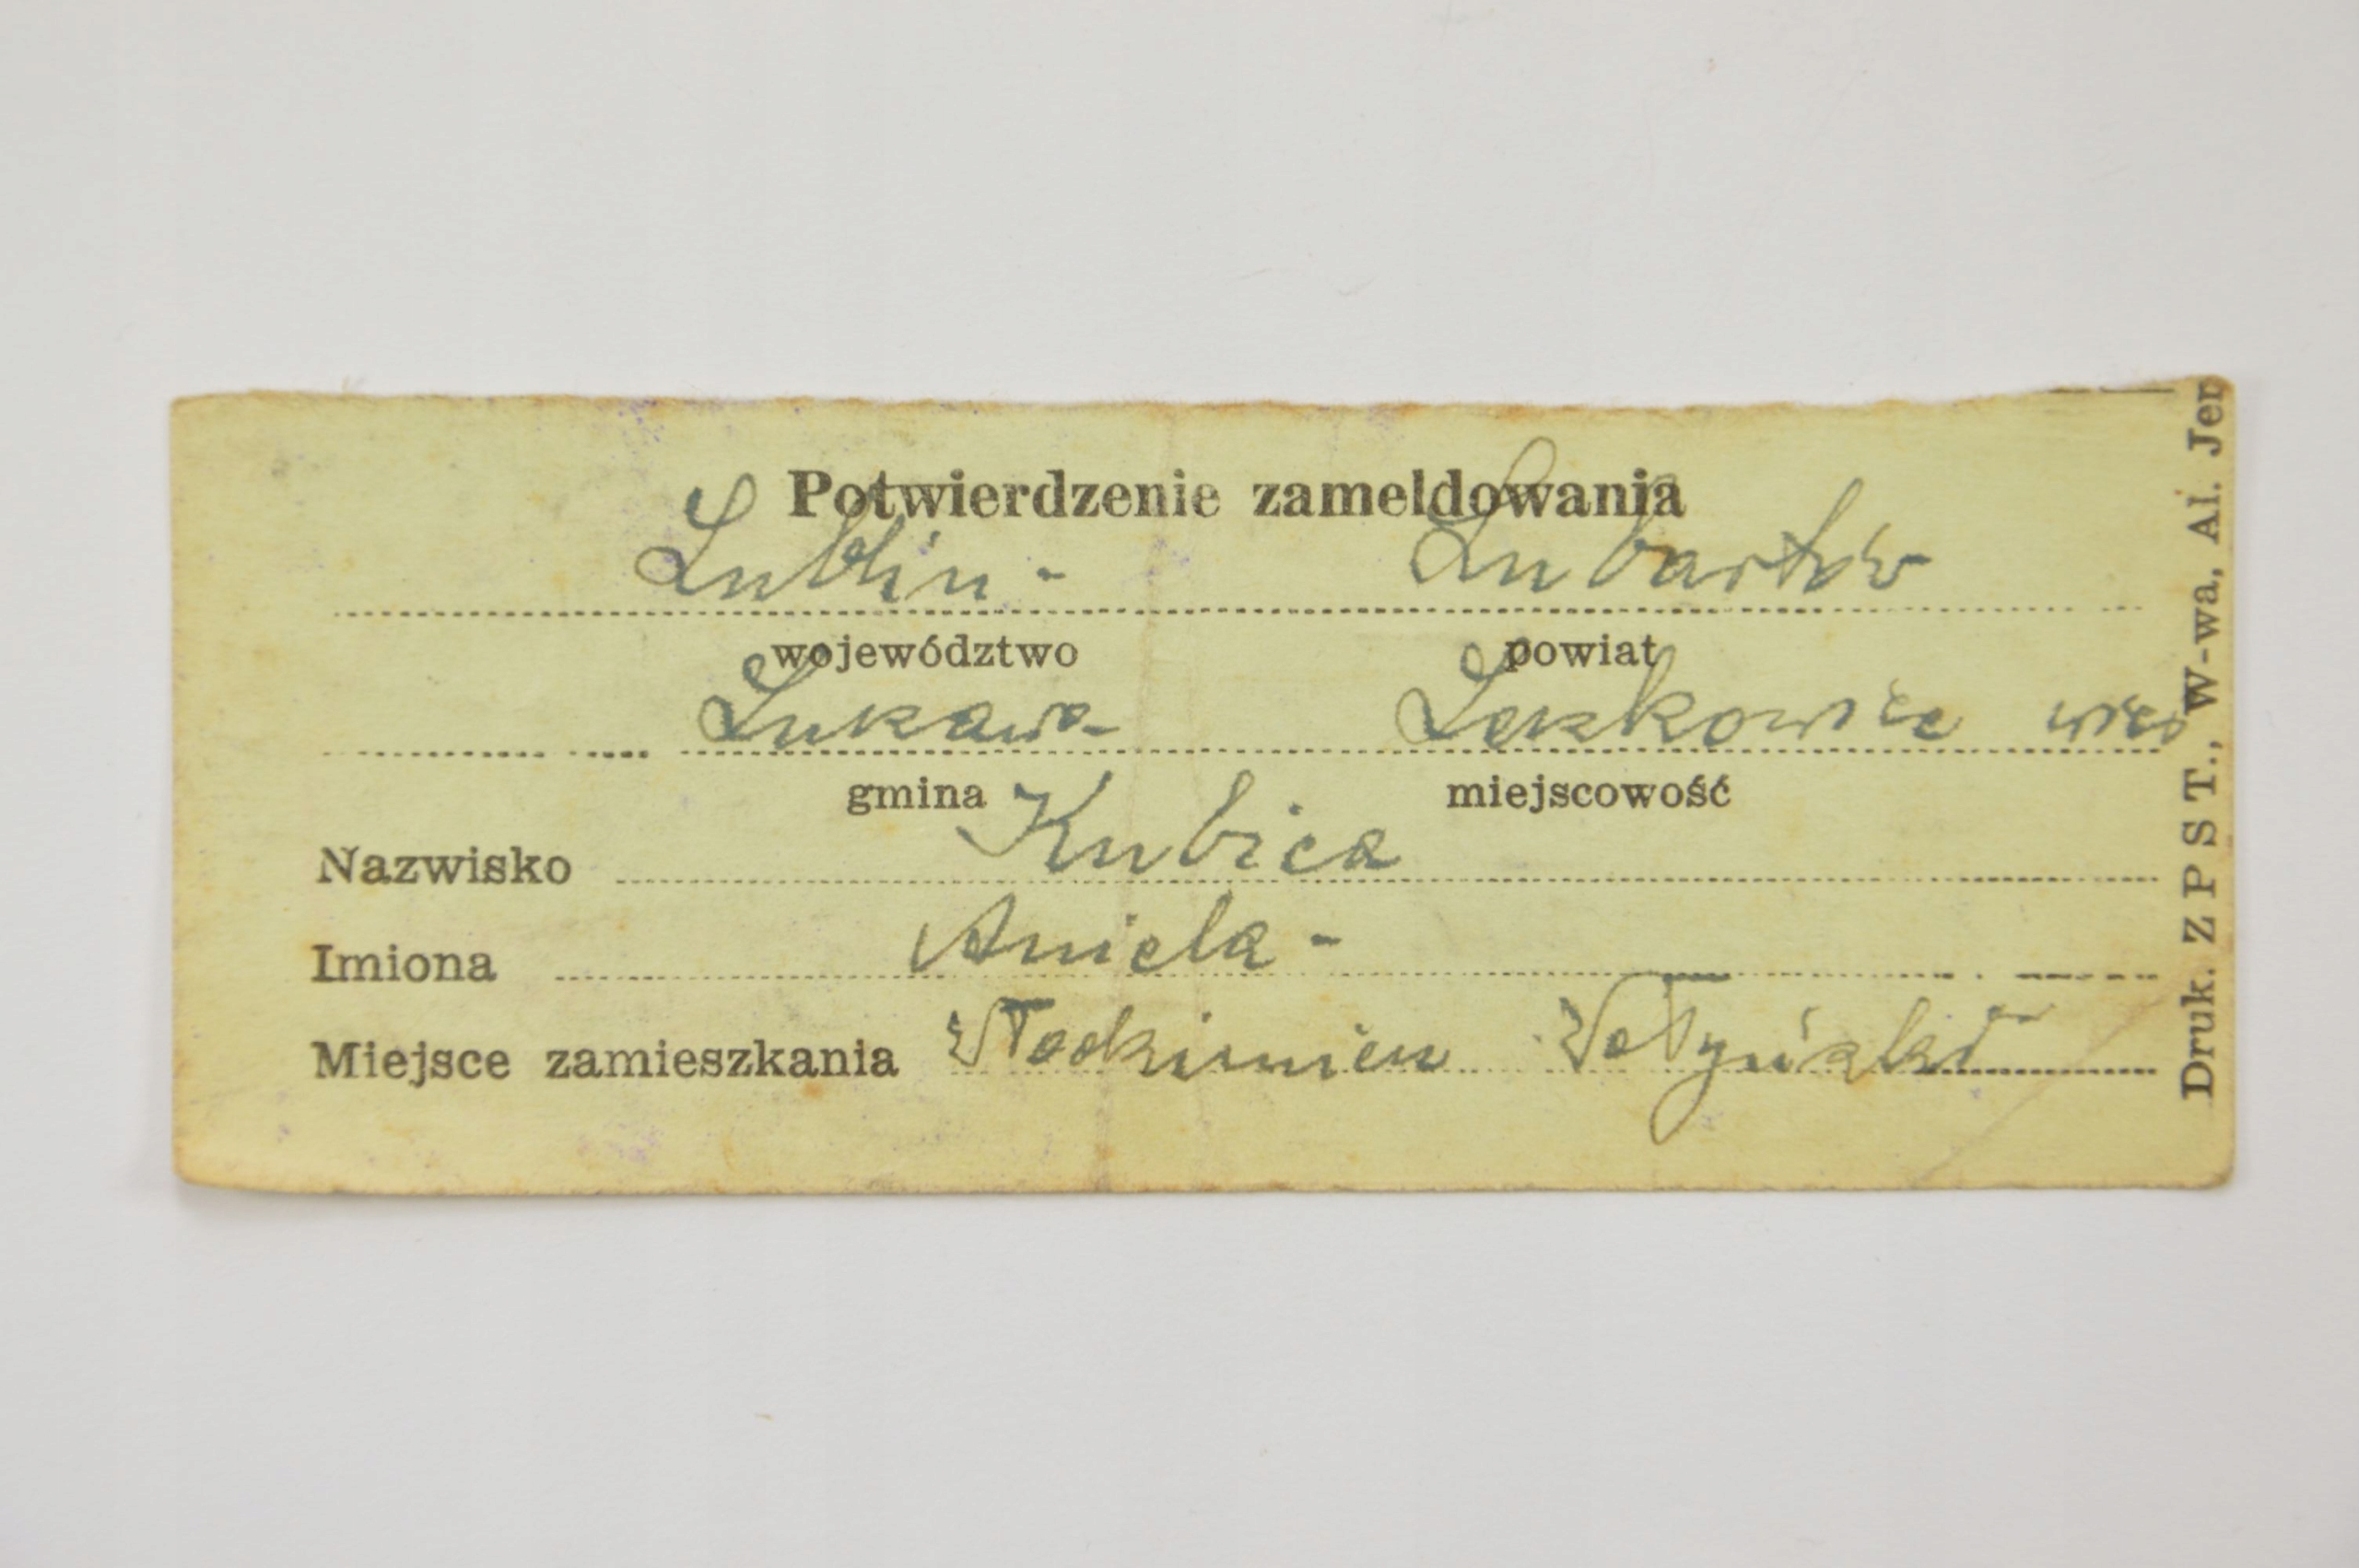 Potwierdzenie zameldowania
Lublin - Lubartów
województwo powiat
Lukawa Leszkowice wieś
gmina miejscowość
Nazwisko Kubica
Imiona Aniela -
Miejsce zamieszkania Włodzimierz Wołyński
Druk. Z P S T., W-wa, Al. Jer